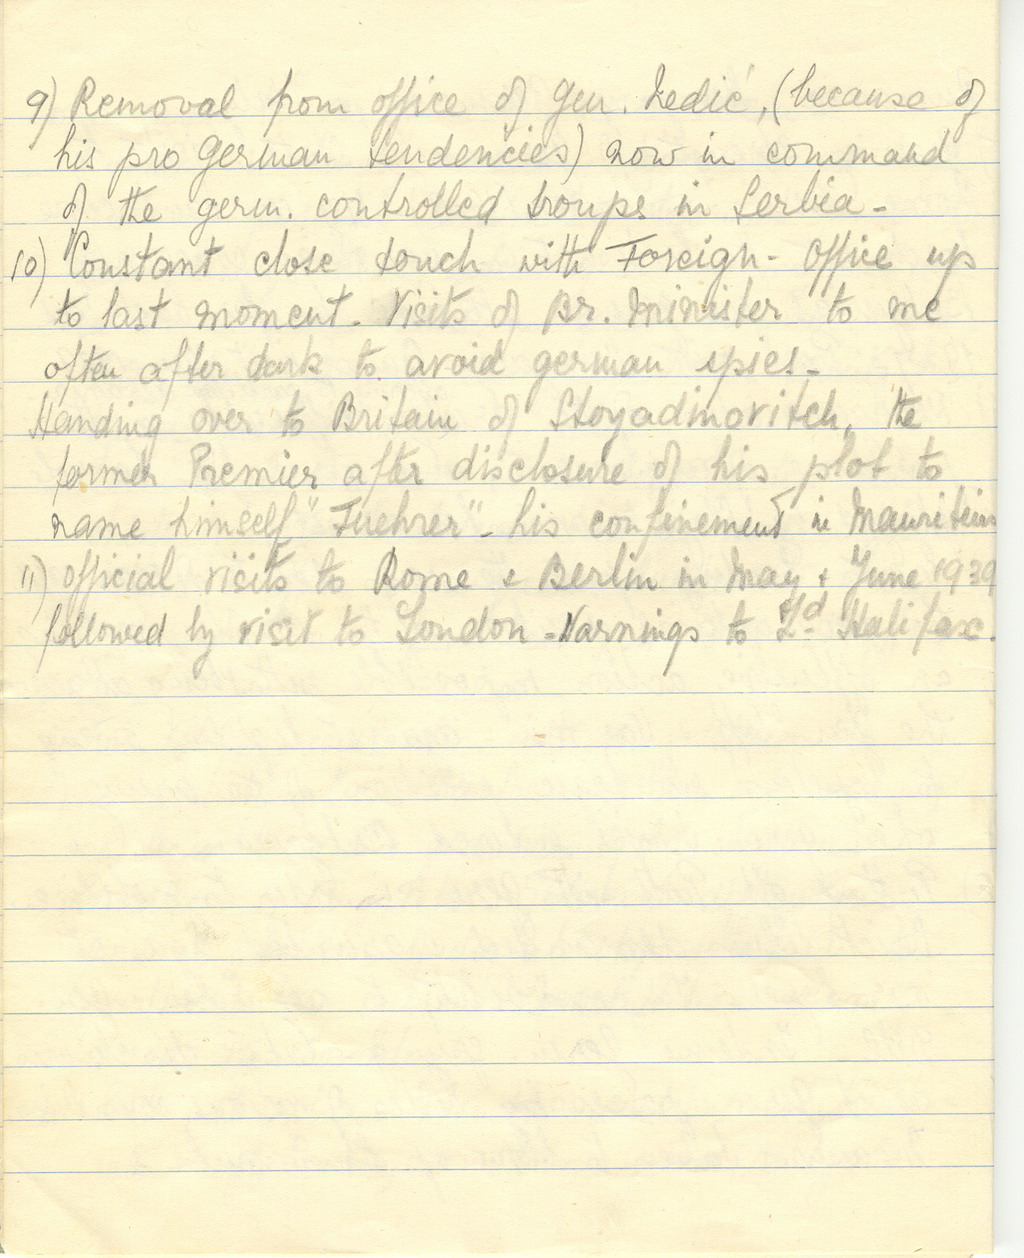 9) Removal from office of Gen. Nedić, (because of
his pro German tendencies) now in command
of the germ. controlled troups in Serbia -
10) Constant close touch with Foreign - Office up
to last moment - Visits of Br. Minister to me
often after dark to avoid german spies -
Handing over to Britain of Stoyadinovitch, the
former Premier after disclosure of his plot to
name himself "Fuehrer" - his confinement in Mauritius
11) official visits to Rome & Berlin in May & June 1939
followed by visit to London - Warnings to Ld Halifax.